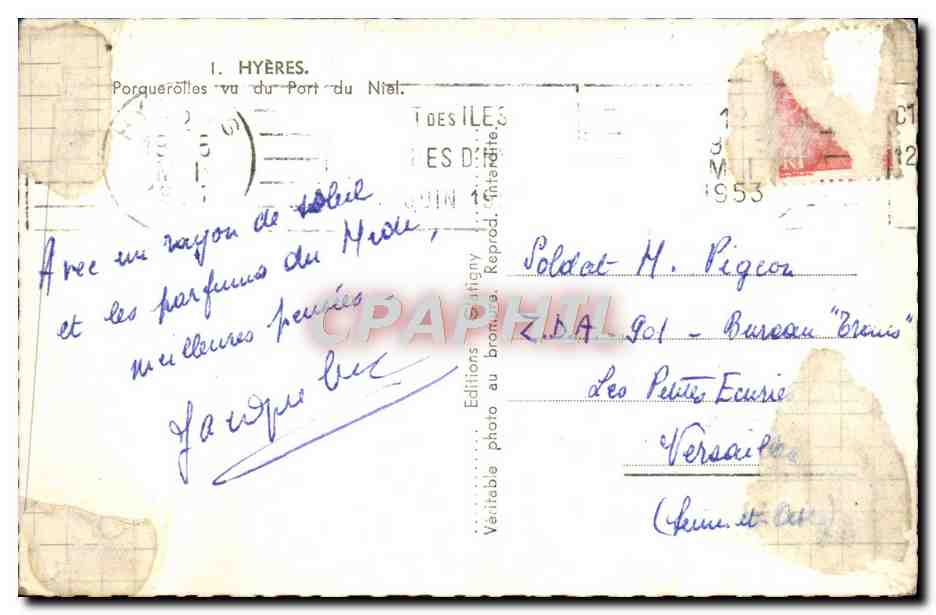 1. HYÈRES.
Porquerolles vu du Port du Niel.
T DES ILES
ES D'H
JUIN 19
12
MAI
1953
12
RF
Avec un rayon de soleil
et les parfums du Midi,
meilleures pensées -
CPAPHIL
Editions
Véritable photo au bromure. Reprod. interdite.
Soldat M. Pigeon
901 - Bureau "Transis"
Les Petites Ecuries
Versailles
(Seine-et-Oise)